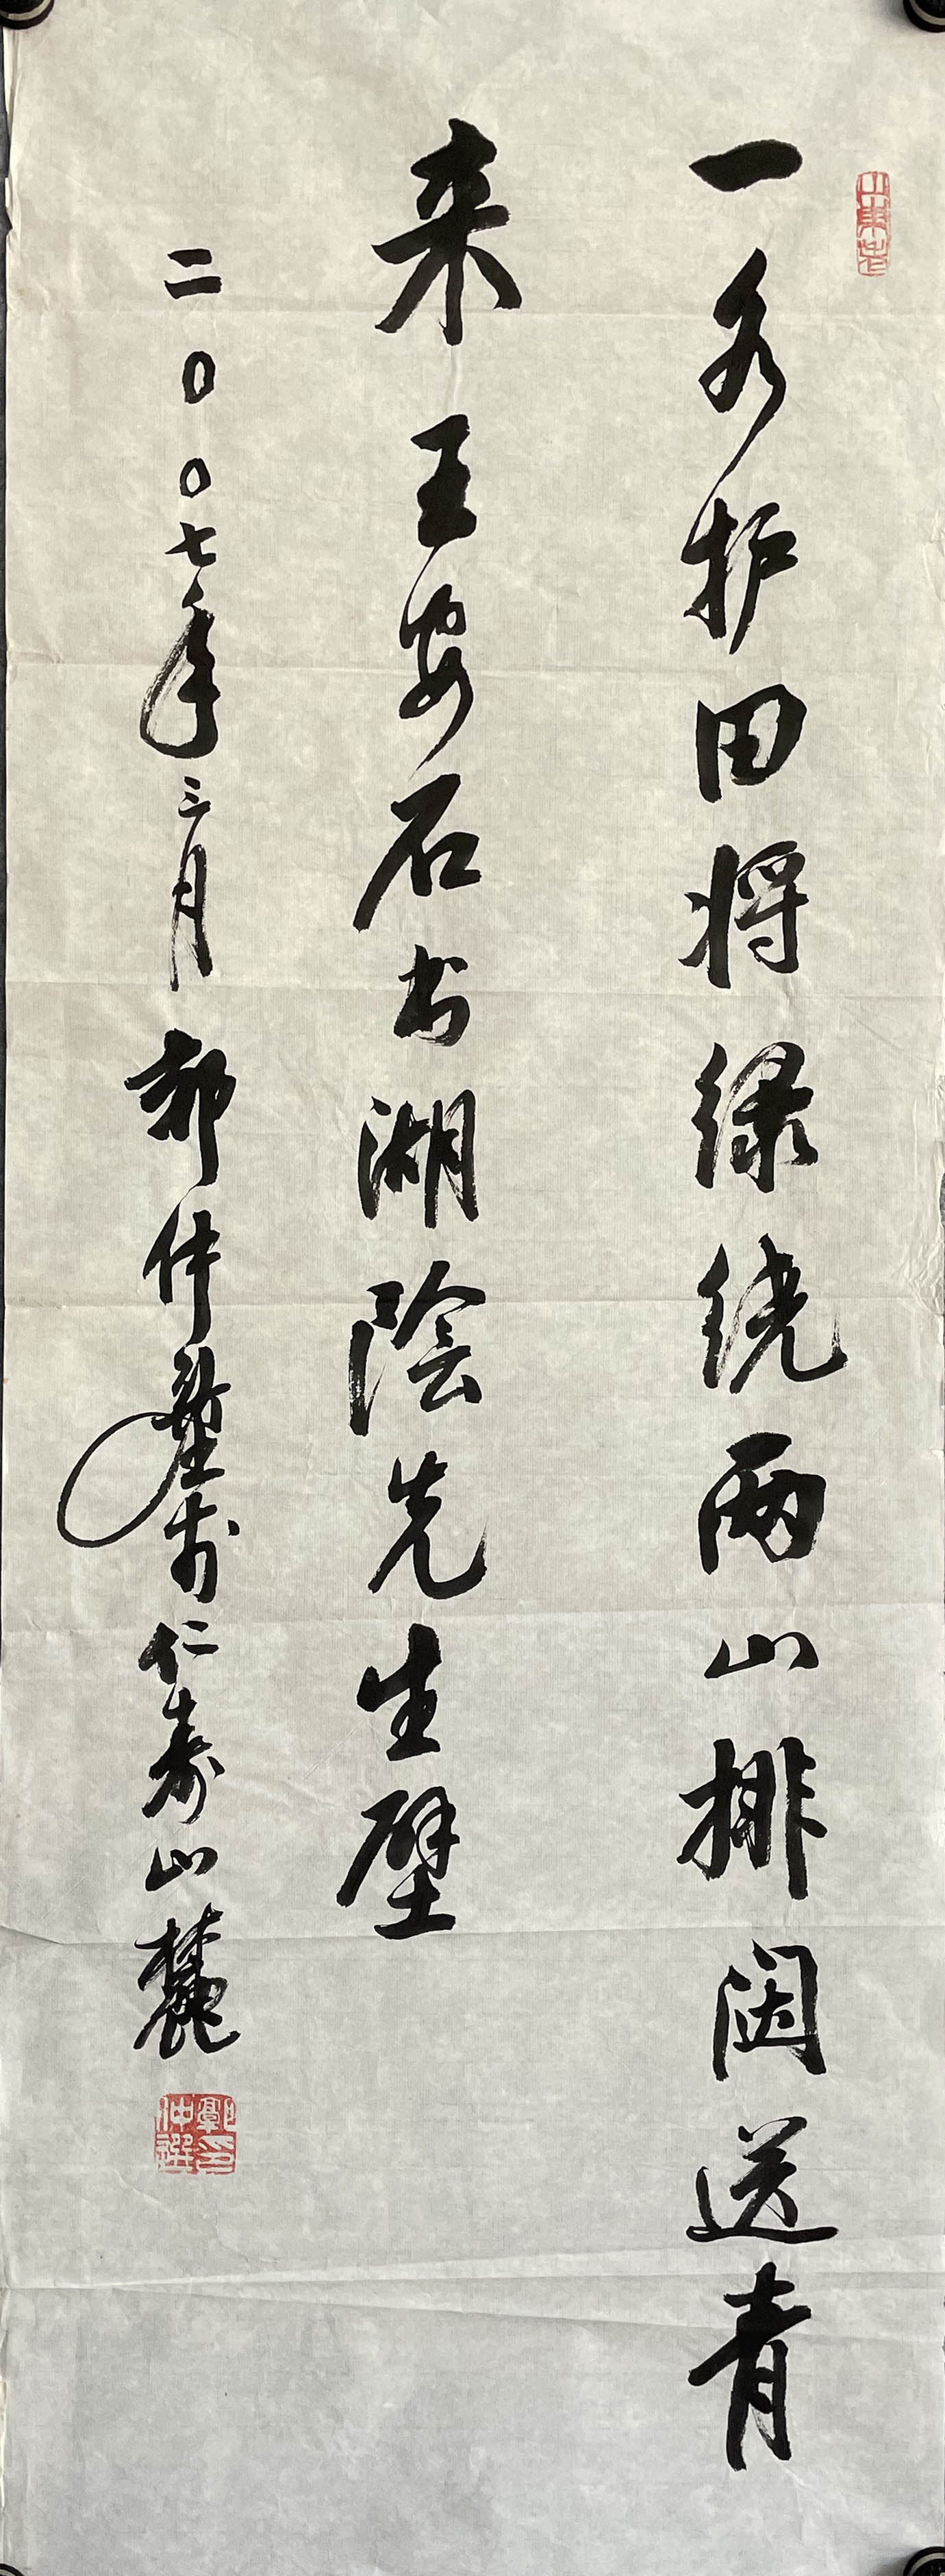 一水护田将绿绕两山排闼送青
来王安石书湖陰先生壁
二〇〇七年三月郭仲選书仁寿山麓
山東老
郭仲選印